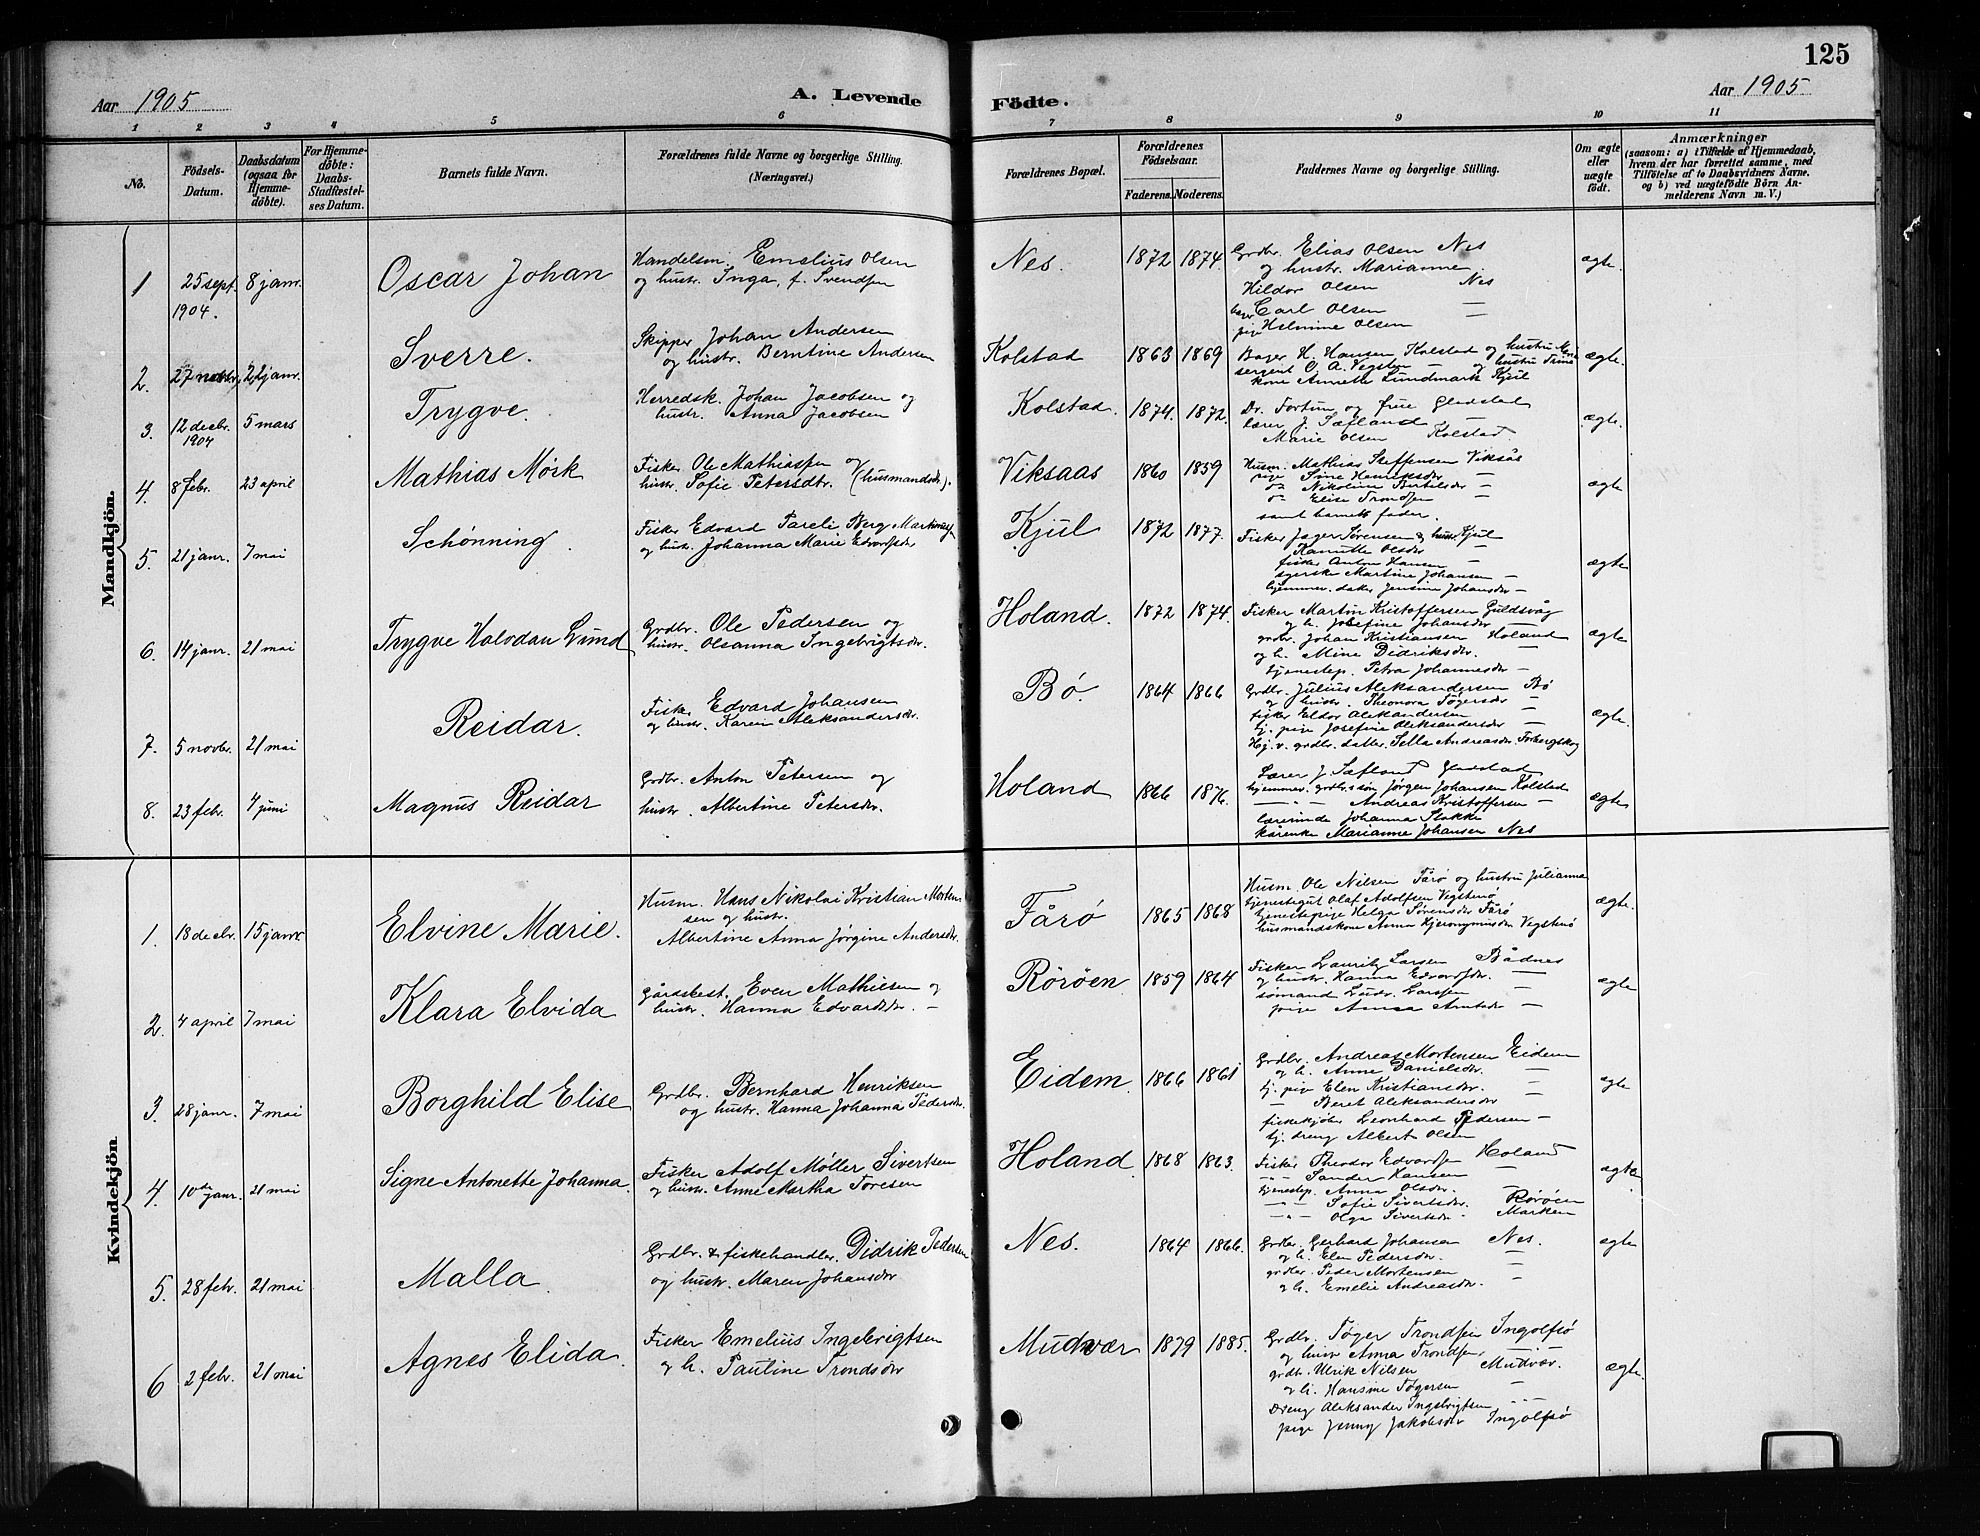 125
Aar 1905
A. Levende
Födte.
Aar 1905
1 2 3 4 5 6 7 8 9 10 11
No.
Födsels-
Datum.
Daabsdatum
(ogsaa for
Hjemme-
döbte).
For Hjemme-
döbte:
Daabs-
Stadfæstel-
ses Datum.
Barnets fulde Navn.
Forældrenes fulde Navne og borgerlige Stilling.
(Næringsvei.)
Forældrenes Bopæl.
Forældrenes
Födselsaar.
Faderens. Moderens.
Faddernes Navne og borgerlige Stilling.
Om ægte
eller
uægte
födt.
Anmærkninger
(saasom: a) i Tilfælde af Hjemmedaab,
hvem der har forrettet samme, med
Tilföielse af to Daabsvidners Navne.
og b) ved uægtefödte Börn An-
melderens Navn m. V.)
Mandkjön.
1 25 sept. 1904. 8 janr. Oscar Johan
Handelsm. Emelius Olsen
og hustr. Inga, f. Svendsen
Nes. 1872 1874.
Grdbr. Elias Olsen Nes
og hustr. Marianne
Hildor Olsen Nes
Carl Olsen —
pige Helmine Olsen
ægte.
2. 27 novbr. 22 janr. Sverre.
Skipper Johan Andersen
og hustr. Berntine Andersen
Kolstad 1863 1869
Bager H. Hansen Kolstad og hustru
sergent O. A. Vegsten — og hustru Trine
kone Annette Lundmark Kjul
ægte.
3. 12 decbr. 1904 5 mars Trygve.
Herredsk. Johan Jacobsen og
hustr. Anna Jacobsen
Kolstad. 1874. 1872.
Dr. Fortun og frue Gladstad
Lærer J. Sæfland —
Marie Olsen Kolstad.
ægte.
4. 8 febr. 23 april Mathias Mörk
Fisker Ole Mathiassen og
hustr. Sofie Petersdtr. (husmandsdr.).
Viksaas 1860 1859
Husm. Mathias Steffensen Viksås
pige Sine Henriksdr —
do Nikoline Bertelsdr —
do Elise Trondsen
samt barnets fader.
ægte
5. 21 janr. 7 mai Schønning.
Fisker Edvard Pareli Berg
og hustr. Johanna Marie Edvardsdr
Kjul 1872 1877.
Fisker Jager Sörensen & hustr. Kjul
Hanutte Olsdr —
fisker Anton Hansen —
syerske Martine Johansen —
hjemmev. datter Jensine Johansdr —
ægte
6. 14 janr. 21 mai Trygve Halvdan Lund
Grdbr. Ole Pedersen og
hustr. Olsanna Ingebrigtsdr.
Holand. 1872 1874.
Fisker Martin Kristoffersen Guldsvåg
og h. Josefine Johansdr —
grdbr. Johan Kristiansen Holand
og h. Mine Didriksdr. —
tjenestep. Petra Johannesdr —
ægte
7. 5 novbr. 21 mai Reidar.
Fisker Edvard Johansen
og hustr. Karen Aleksandersdr.
Bø. 1864 1866
Grdbr. Julius Aleksandersen Bø
og hustr. Theonora Tøgersdr —
fisker Eldor Aleksandersen —
tj. pige Josefine Aleksandersdr —
Hj. v. grdbr. datter Sella Andreasdr. Forbergskog
ægte.
8. 23 febr. 4 juni Magnus Reidar
Grdbr. Anton Petersen og
hustr. Albertine Petersdr.
Holand 1866 1876.
Lærer J. Sæfland Gladstad
hjemmev. grdbr.s søn Jørgen Johansen Kolstad
— " — Andreas Kristoffersen —
lærerinde Johanna Stokke
kårenke Marianne Johansen Nes
ægte
Kvindekjön
1. 18 decbr. 15 janr. Elvine Marie.
Husm. Hans Nikolai Kristian Morten-
sen og hustr.
Albertine Anna Jørgine Andersdr.
Fårø 1865 1868
Husm. Ole Nilsen Fårø og hustru Julianna
tjenestegut Olaf Adolfsen Vegstenø
tjenestepige Helga Sørensdr Fårø
husmandskone Anna Hjeronymusdr Vegstenø
ægte.
2. 4 april 7 mai Klara Elvida
Gårdsbest. Even Mathiesen og
hustr. Hanna Edvardsdr. —
Rörøen 1859 1864
Fisker Lauritz Larsen Bådnes
og hustr. Hanna Edvardsdr. —
sømand Ludv. Larssen —
pige Anna Arntsdr —
ægte
3. 28 janr. 7 mai Borghild Elise
Grdbr. Bernhard Henriksen
og hustr. Hanna Johanna Pedersdr.
Eidem. 1866 1861
Grdbr. Andreas Mortensen Eidem
og h. Anne Danielsdr. —
tj. pige Elen Kristiansdr. —
— Beret Aleksandersdr —
fiskekjøber Leonhard Pedersen —
tj. dreng Albert Olsen
ægte
4. 10de janr. 21 mai Signe Antonette Johanna.
Fisker Adolf Møller Sivertsen
og hustr. Anne Martha Toresen
Holand. 1868 1863.
Fisker Theodor Edvardsen Holand
— " — Sander Hansen —
tjenestep. Anna Olsdr. —
— " — Sofie Sivertsdr. Rörøen
— " — Olga Sivertsdr. Marken
ægte.
5. 28 febr. 21 mai Malla.
Grdbr. & fiskehandler Didrik Pedersen
og hustr. Maren Johansdr
Nes. 1864 1866.
Grdbr. Gerhard Johansen Nes.
og h. Elen Pedersdr. —
grdbr. Peder Mortensen —
og h. Emelie Andreasdr. —
ægte
6 2 febr. 21 mai Agnes Elida.
Fisker Emelius Ingebrigtsen
og h. Pauline Trondsdr
Mudvær 1879 1885.
Grdbr. Tøger Trondsen Ingolfsø
og hustr Anna Trondsen. —
grdbr. Ulrik Nilsen Mudvær.
og h. Hansine Tøgersen —
Dreng Aleksander Ingebrigtsen
pige Jenny Jakobsdr Ingolfsø
ægte.